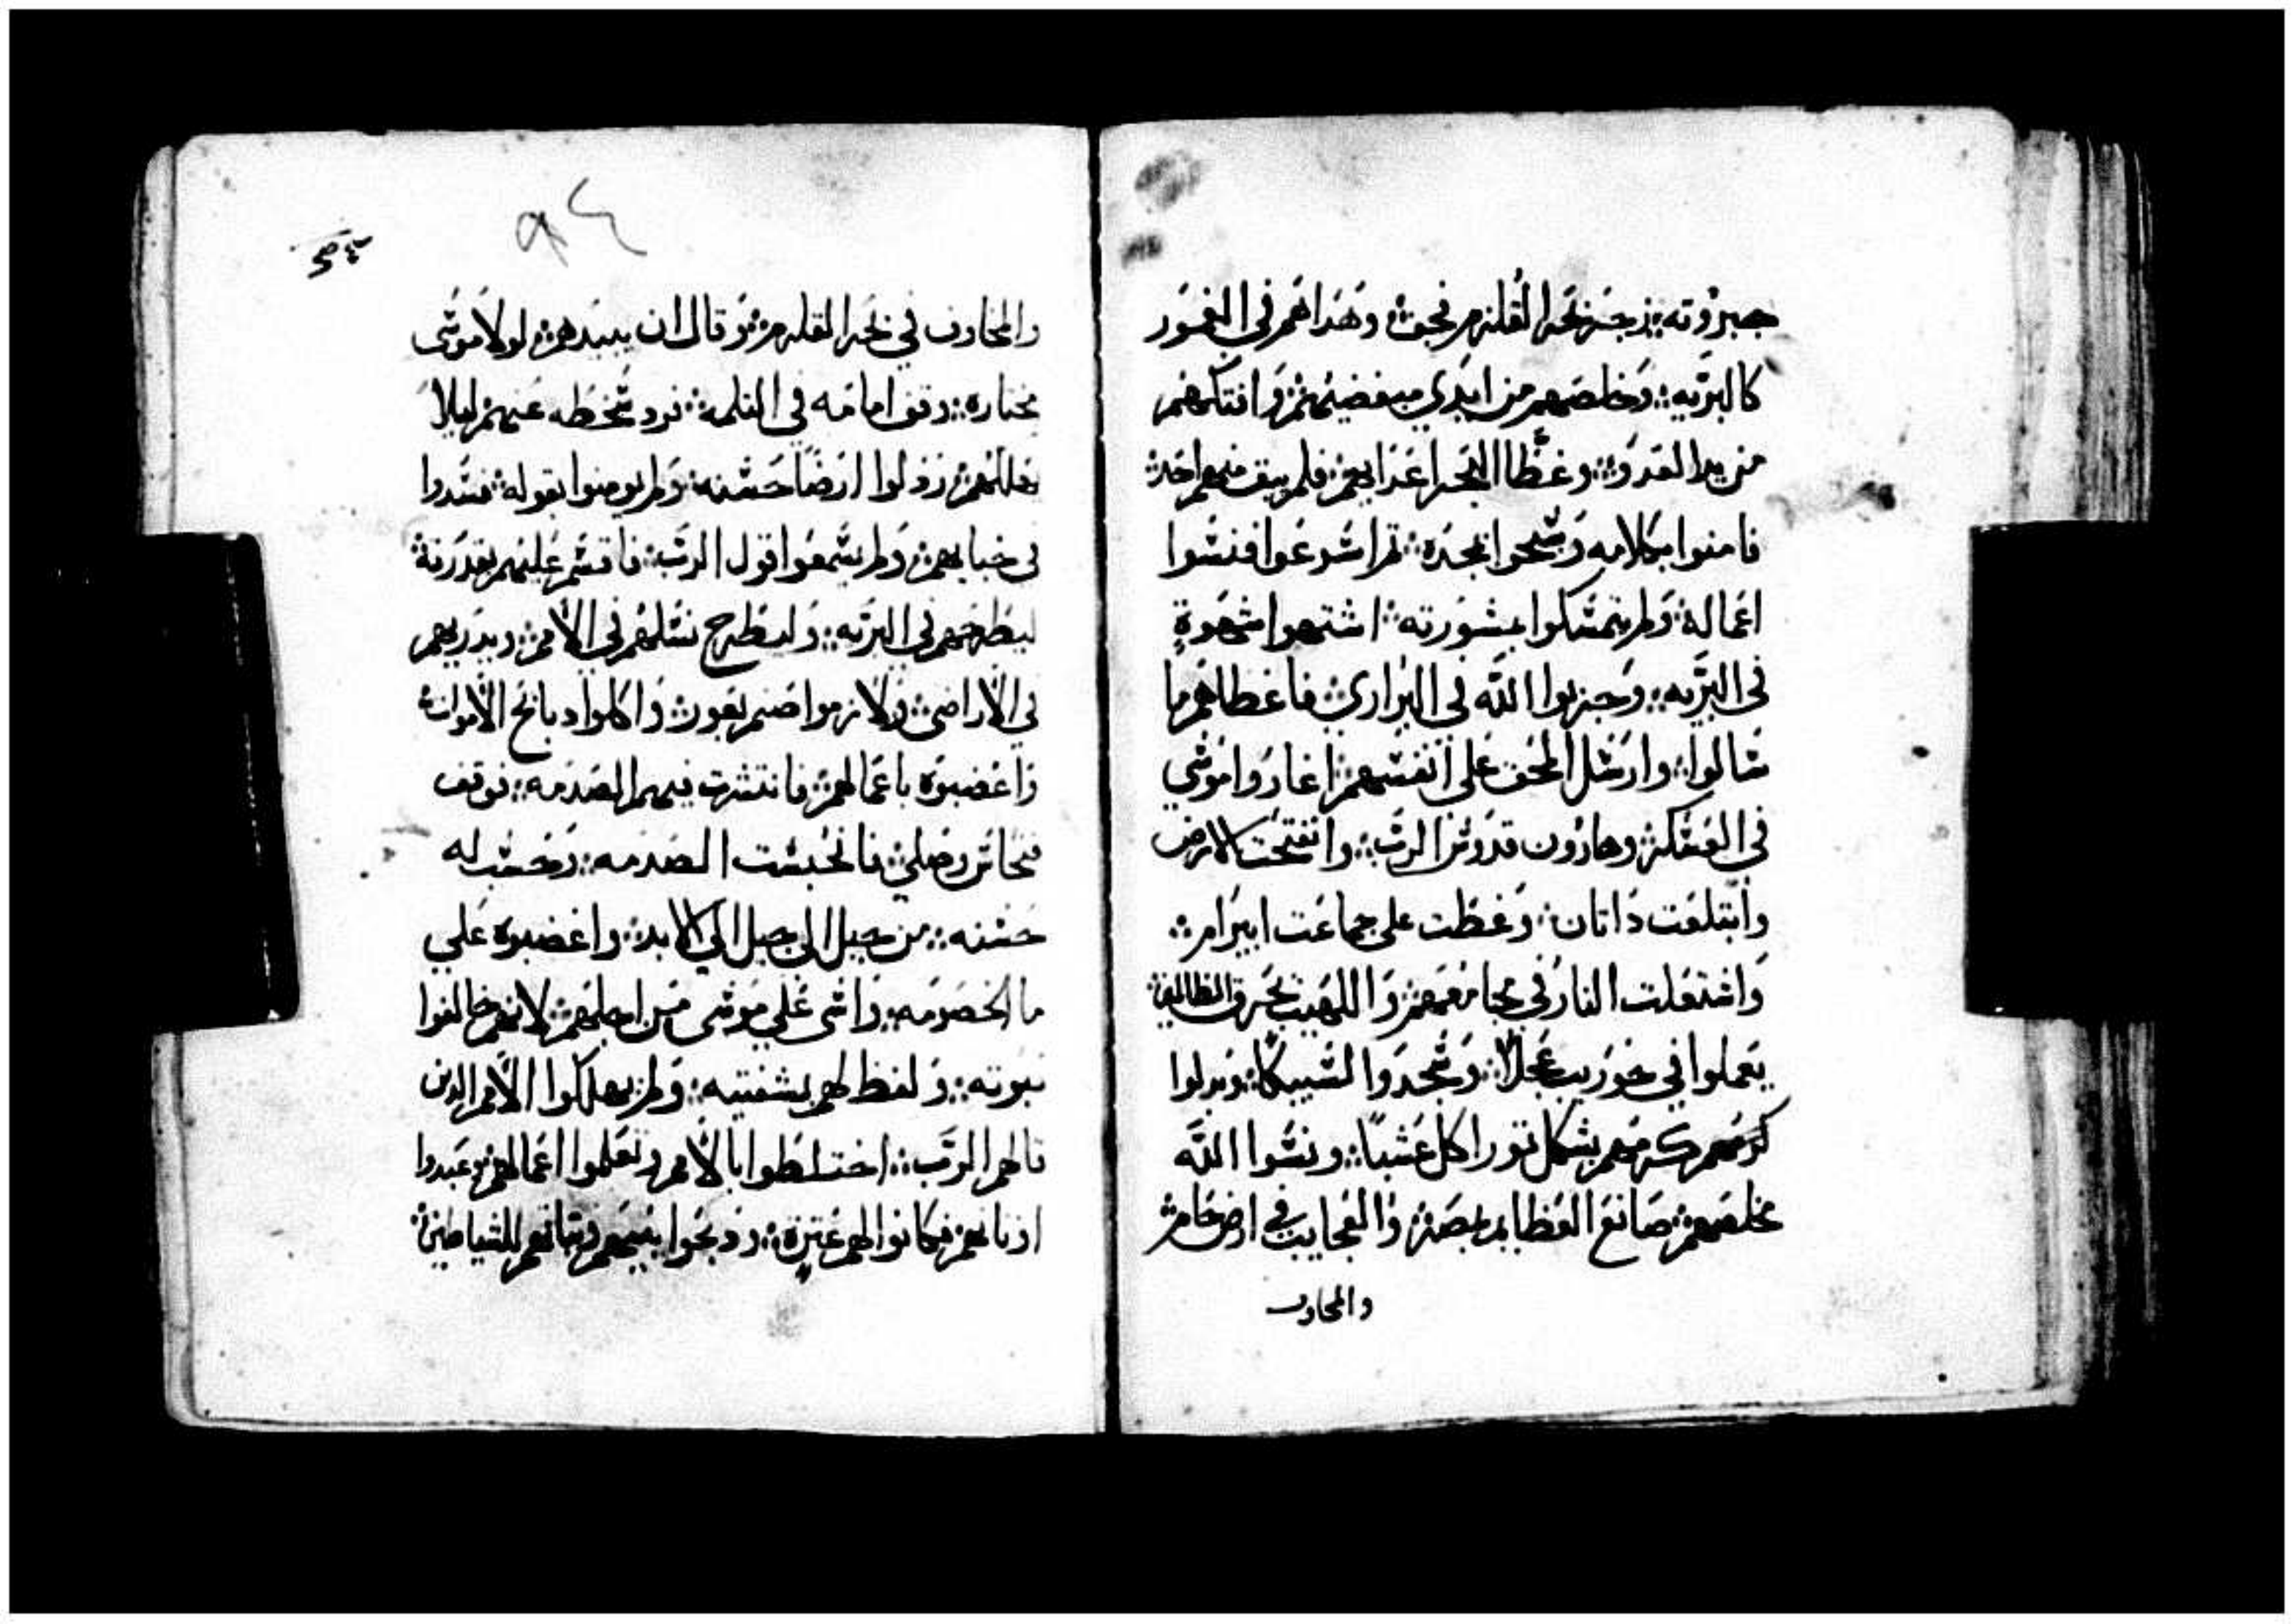 جبروته :: زجر بحر القلزم فجف :: وهداهم في الغمور
كالبريه :: وخلصهم من ايدي مبغضيهم :: وافتكهم
من يد العدو :: وغطا البحر اعدايهم :: فلم يبق منهم احد ::
فامنوا بكلامه وسبحوا بمجده :: ثم اسرعوا فنسوا
اعماله :: ولم يتمسكوا بمشورته :: اشتهوا شهوة
في البريه :: وجربوا الله في البراري :: فاعطاهم ما
سالوا :: وارسل المحق على انفسهم :: اغاروا موسي
في العسكر :: وهارون قدوس الرب :: وانفتحت الارض
وابتلعت داتان :: وغطت على جماعت ابيرام ::
واشتعلت النار في مجامعهم :: واللهيب يحرق الظالمين ::
يعملوا في حوريب عجلا :: وسجدوا لسبيكا :: وبدلوا
كرمهم بشكل تور اكل عشبا :: ونسوا الله
مخلصهم :: صانع العظايم بمصر :: والعجايب في ارض حام ::
والمخاوف
٩٤
والمخاوف في بحر القلزم :: وقال ان يبيدهم :: لولا موسى
مختاره :: وقف امامه في الثلمه :: فرد سخطه عنهم ليلا
يهلكهم :: رذلوا ارضا حسنه :: ولم يومنوا بقوله :: فتمردوا
في خبايهم :: ولم يسمعوا قول الرب :: فاقسم عليهم بقدرته ::
ليطرحهم في البريه :: وليطرح نسلهم في الامم :: ويدريهم
في الاراضي :: ولازموا صنم بعور :: واكلوا دبايح الاموات ::
واغضبوه باعمالهم :: فانتشرت فيهم الصدمه :: فوقف
فنحاس وصلي :: فانحبست الصدمه :: وحسب له
حسنه :: من جيل الى جيل الى الابد :: واغضبوه علي
ما الخصومه :: واسى علي موسى من اجلهم :: لانهم خالفوا
نبوته :: ولفظ لهم بشفتيه :: ولم يهلكوا الامم الدين
قالهم الرب :: اختلطوا بالامم وتعلموا اعمالهم :: وعبدوا
اوتانهم فكانوا لهم عترة :: ودبحوا بنيهم وبناتهم للشياطين ::